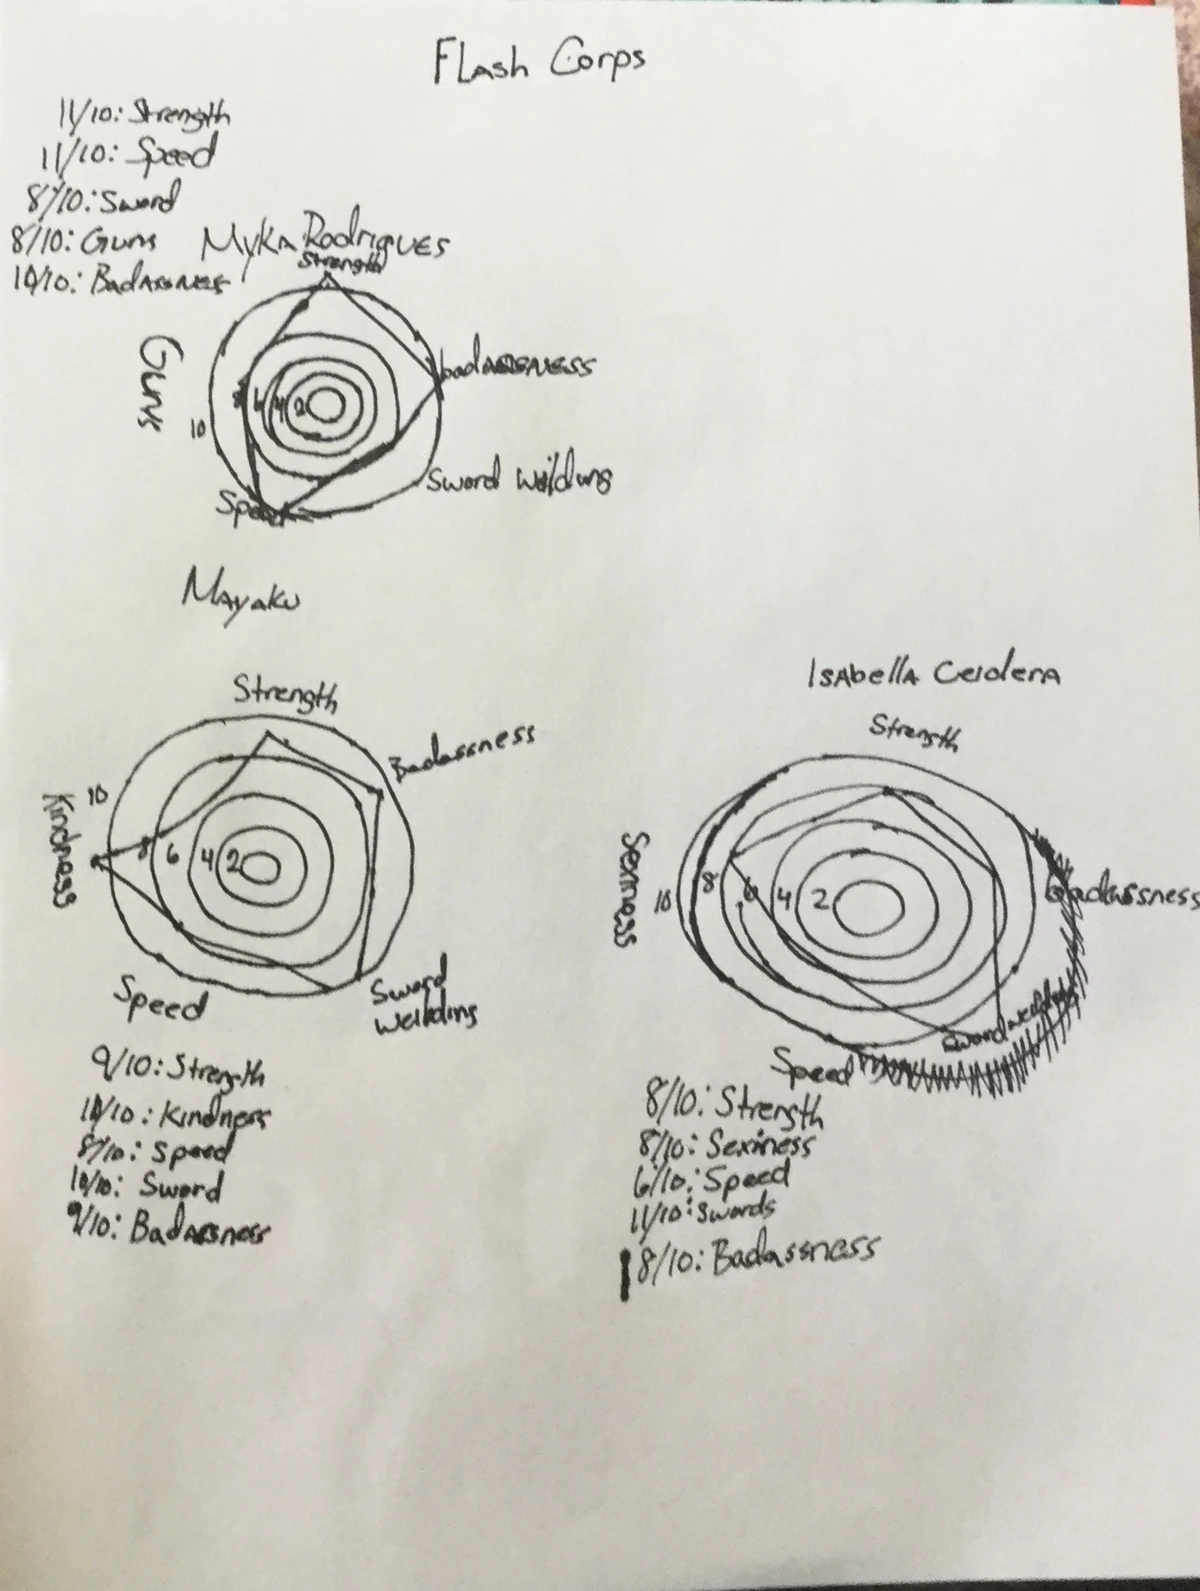 FLash Corps
11/10: Strength
11/10: Speed
8/10: Sword
8/10: Guns
10/10: Badassness
Myka Rodrigues
Strength
badassness
Guns
8 6 4 2
10
Sword weilding
Speed
Mayaku
Strength
Badassness
10
Kindness
8 6 4 2
Speed
Sword
weilding
9/10: Strength
11/10: Kindness
8/10: Speed
10/10: Sword
9/10: Badassness
Isabella
Strength
Sexiness
10 8 6 4 2
Badassness
Sword weilding
Speed
8/10: Strength
8/10: Sexiness
6/10: Speed
11/10: Swords
8/10: Badassness